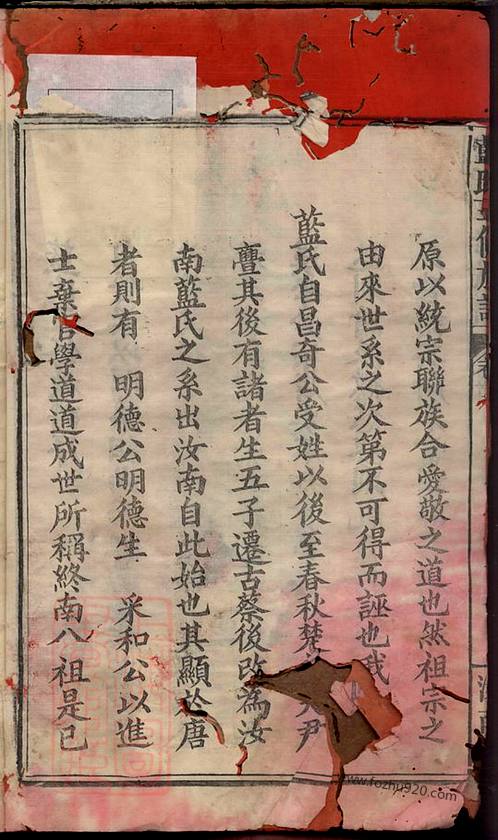 原以統宗聯族合愛敬之道也然祖宗之
由來世系之次第不可得而誣也我
藍氏自昌奇公受姓以後至春秋楚尹
亹其後有諸者生五子遷古蔡後改為汝
南藍氏之系出汝南自此始也其顯於唐
者則有 明德公明德生 采和公以進
士棄官學道道成世所稱終南八祖是已
www.fozhu920.com